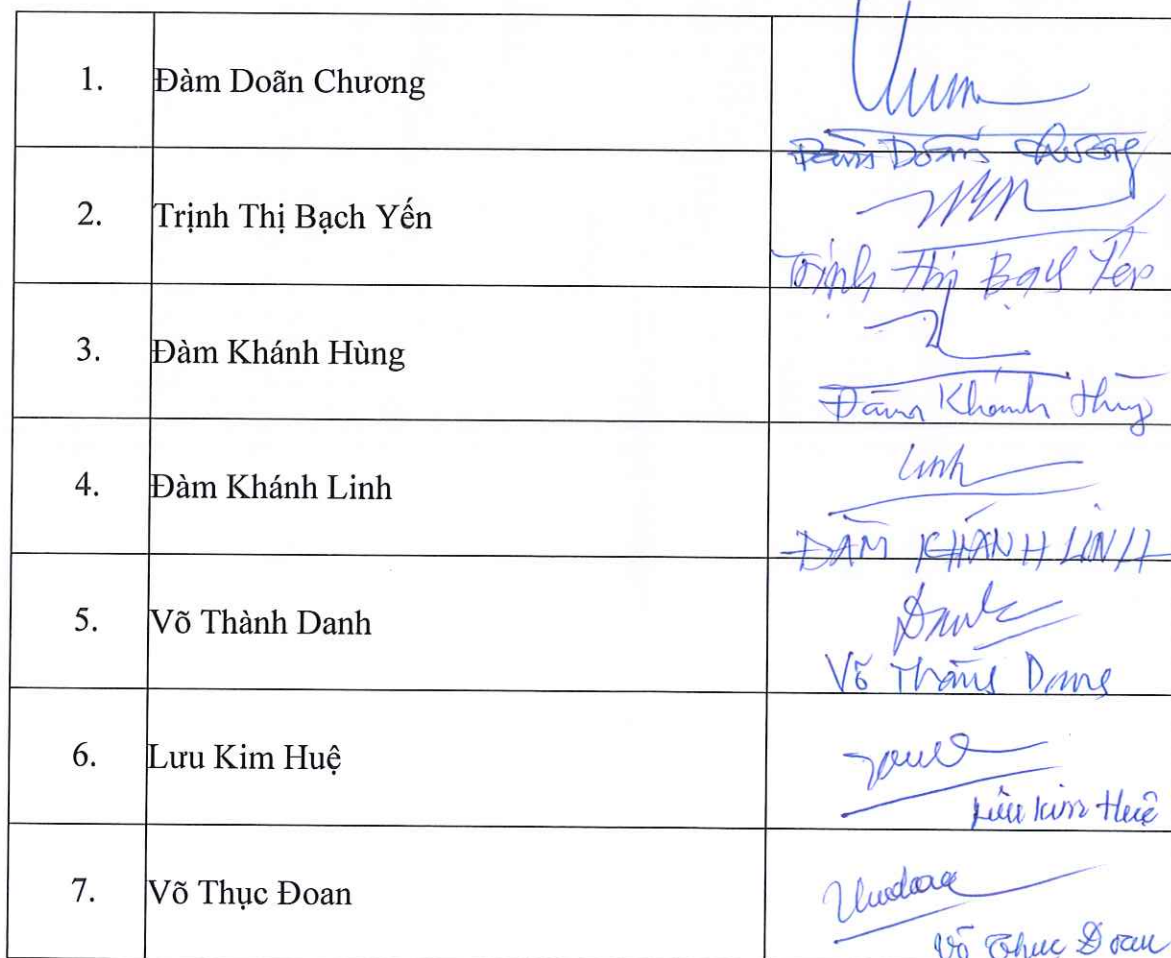 1. Đàm Doãn Chương
Đàm Doãn Chương
2. Trịnh Thị Bạch Yến
Trịnh Thị Bạch Yến
3. Đàm Khánh Hùng
Đàm Khánh Hùng
4. Đàm Khánh Linh
Linh
ĐÀM KHÁNH LINH
5. Võ Thành Danh
Danh
Võ Thành Danh
6. Lưu Kim Huệ
Lưu Kim Huệ
7. Võ Thục Đoan
Võ Thục Đoan